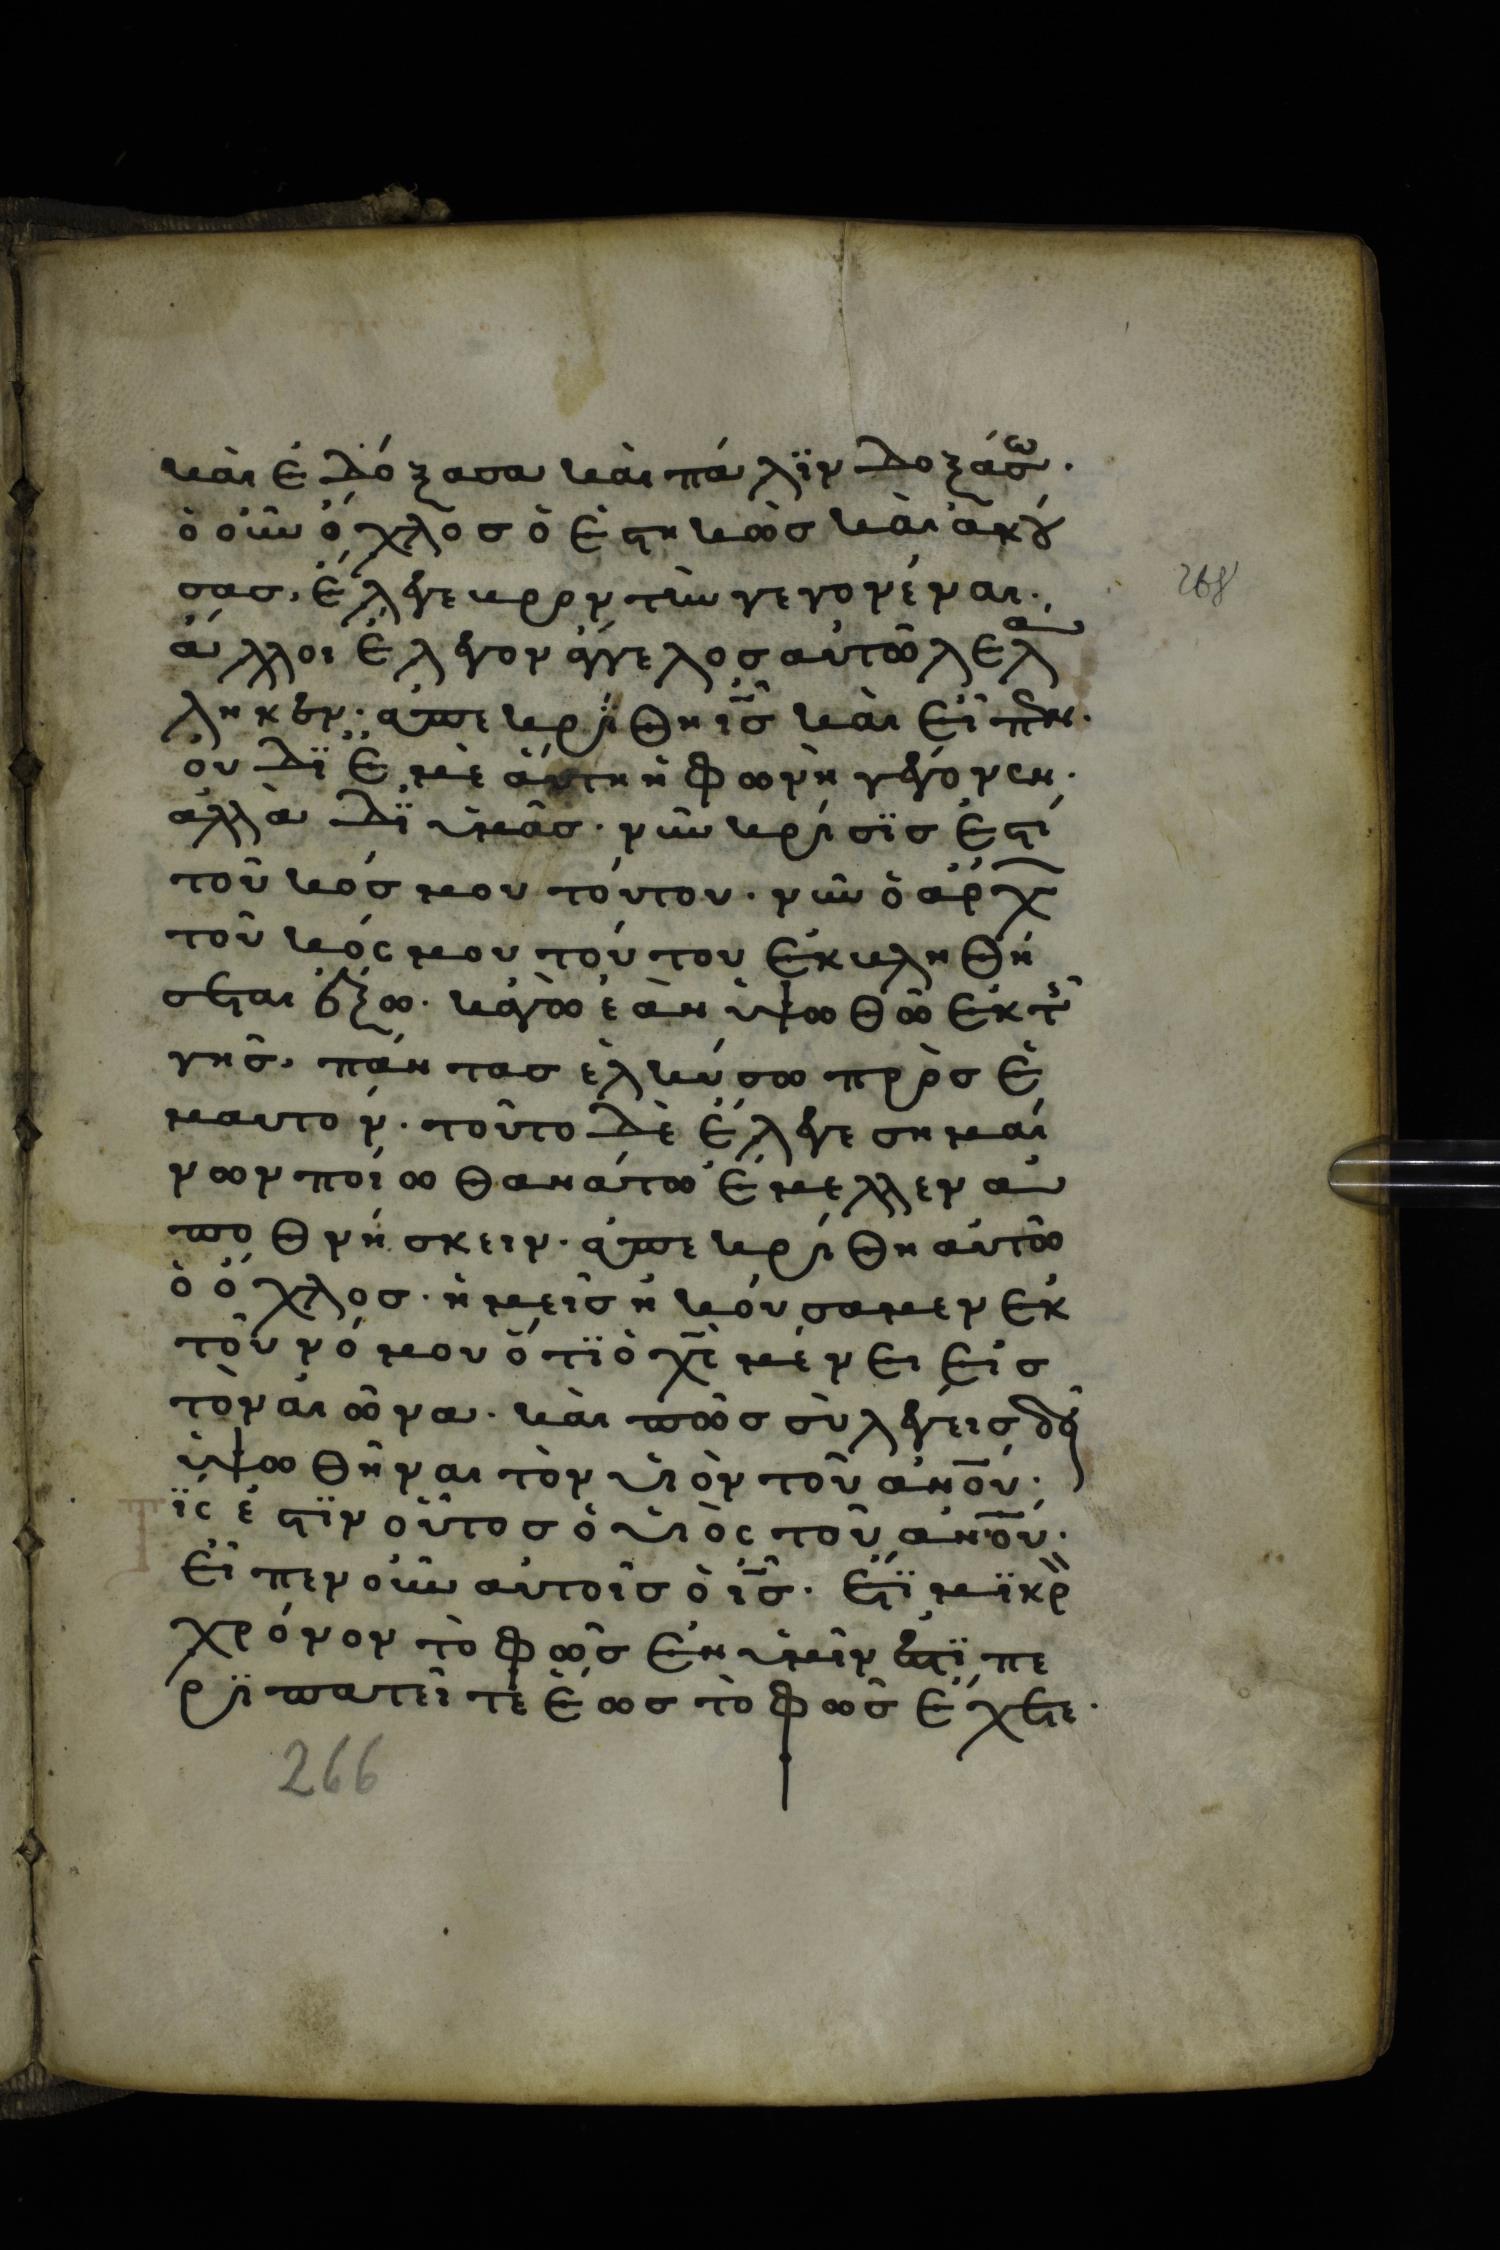 καὶ ἐδόξασα καὶ πάλϊν δοξάσω·
ὁ οὖν ὄχλος ὁ ἑστηκὼς καὶ ἀκού
σας, ἔλεγε κρρν τὴν γεγονέναι·
ἄλλοι ἔλεγον ἄγγελος αὐτῶ λελά
ληκεν· ἀπεκρίθη ις̅ καὶ εἶπεν·
οὐ δϊ ἐμὲ ἅυτη ἡ φωνὴ γέγονεν·
ἀλλὰ δϊ ὑμᾶς· νῦν κρίσϊς ἐστὶ
τοῦ κόσμου τούτου· νῦν ὁ ἄρχ
τοῦ κόσμου τούτου ἐκκληθή
σεται ἔξω· κἀγὼ ἐὰν ὑψωθῶ ἐκ τῆς
γῆς, πάντας ἑλκύσω πρὸς ἐ
μαυτόν· τοῦτο δὲ ἔλεγε σημαί
νων ποίω θανάτω ἔμελλεν ἀ
ποθνήσκειν· ἀπεκρίθη αὐτῶ
ὁ ὄχλος· ἡμεῖς ἠκούσαμεν ἐκ
τοῦ νόμου ὅτϊ ὁ χς̅ μένει εἰς
τὸν αἰῶνα· καὶ πῶς σὺ λέγεις δεῖ
ὑψωθῆναι τὸν υἱὸν τοῦ ἀν̅ου·
Τϊς ἐστϊν οὗτος ὁ υἱὸς τοῦ ἀν̅ου·
εἶπεν οὖν αὐτοῖς ὁ ις̅· ἔτϊ μϊκρὸν
χρόνον τὸ φῶς ἐν ὑμῖν ἐστϊ πε
ρϊπατεῖτὲ ἕως τὸ φῶς ἔχετε·
268
266